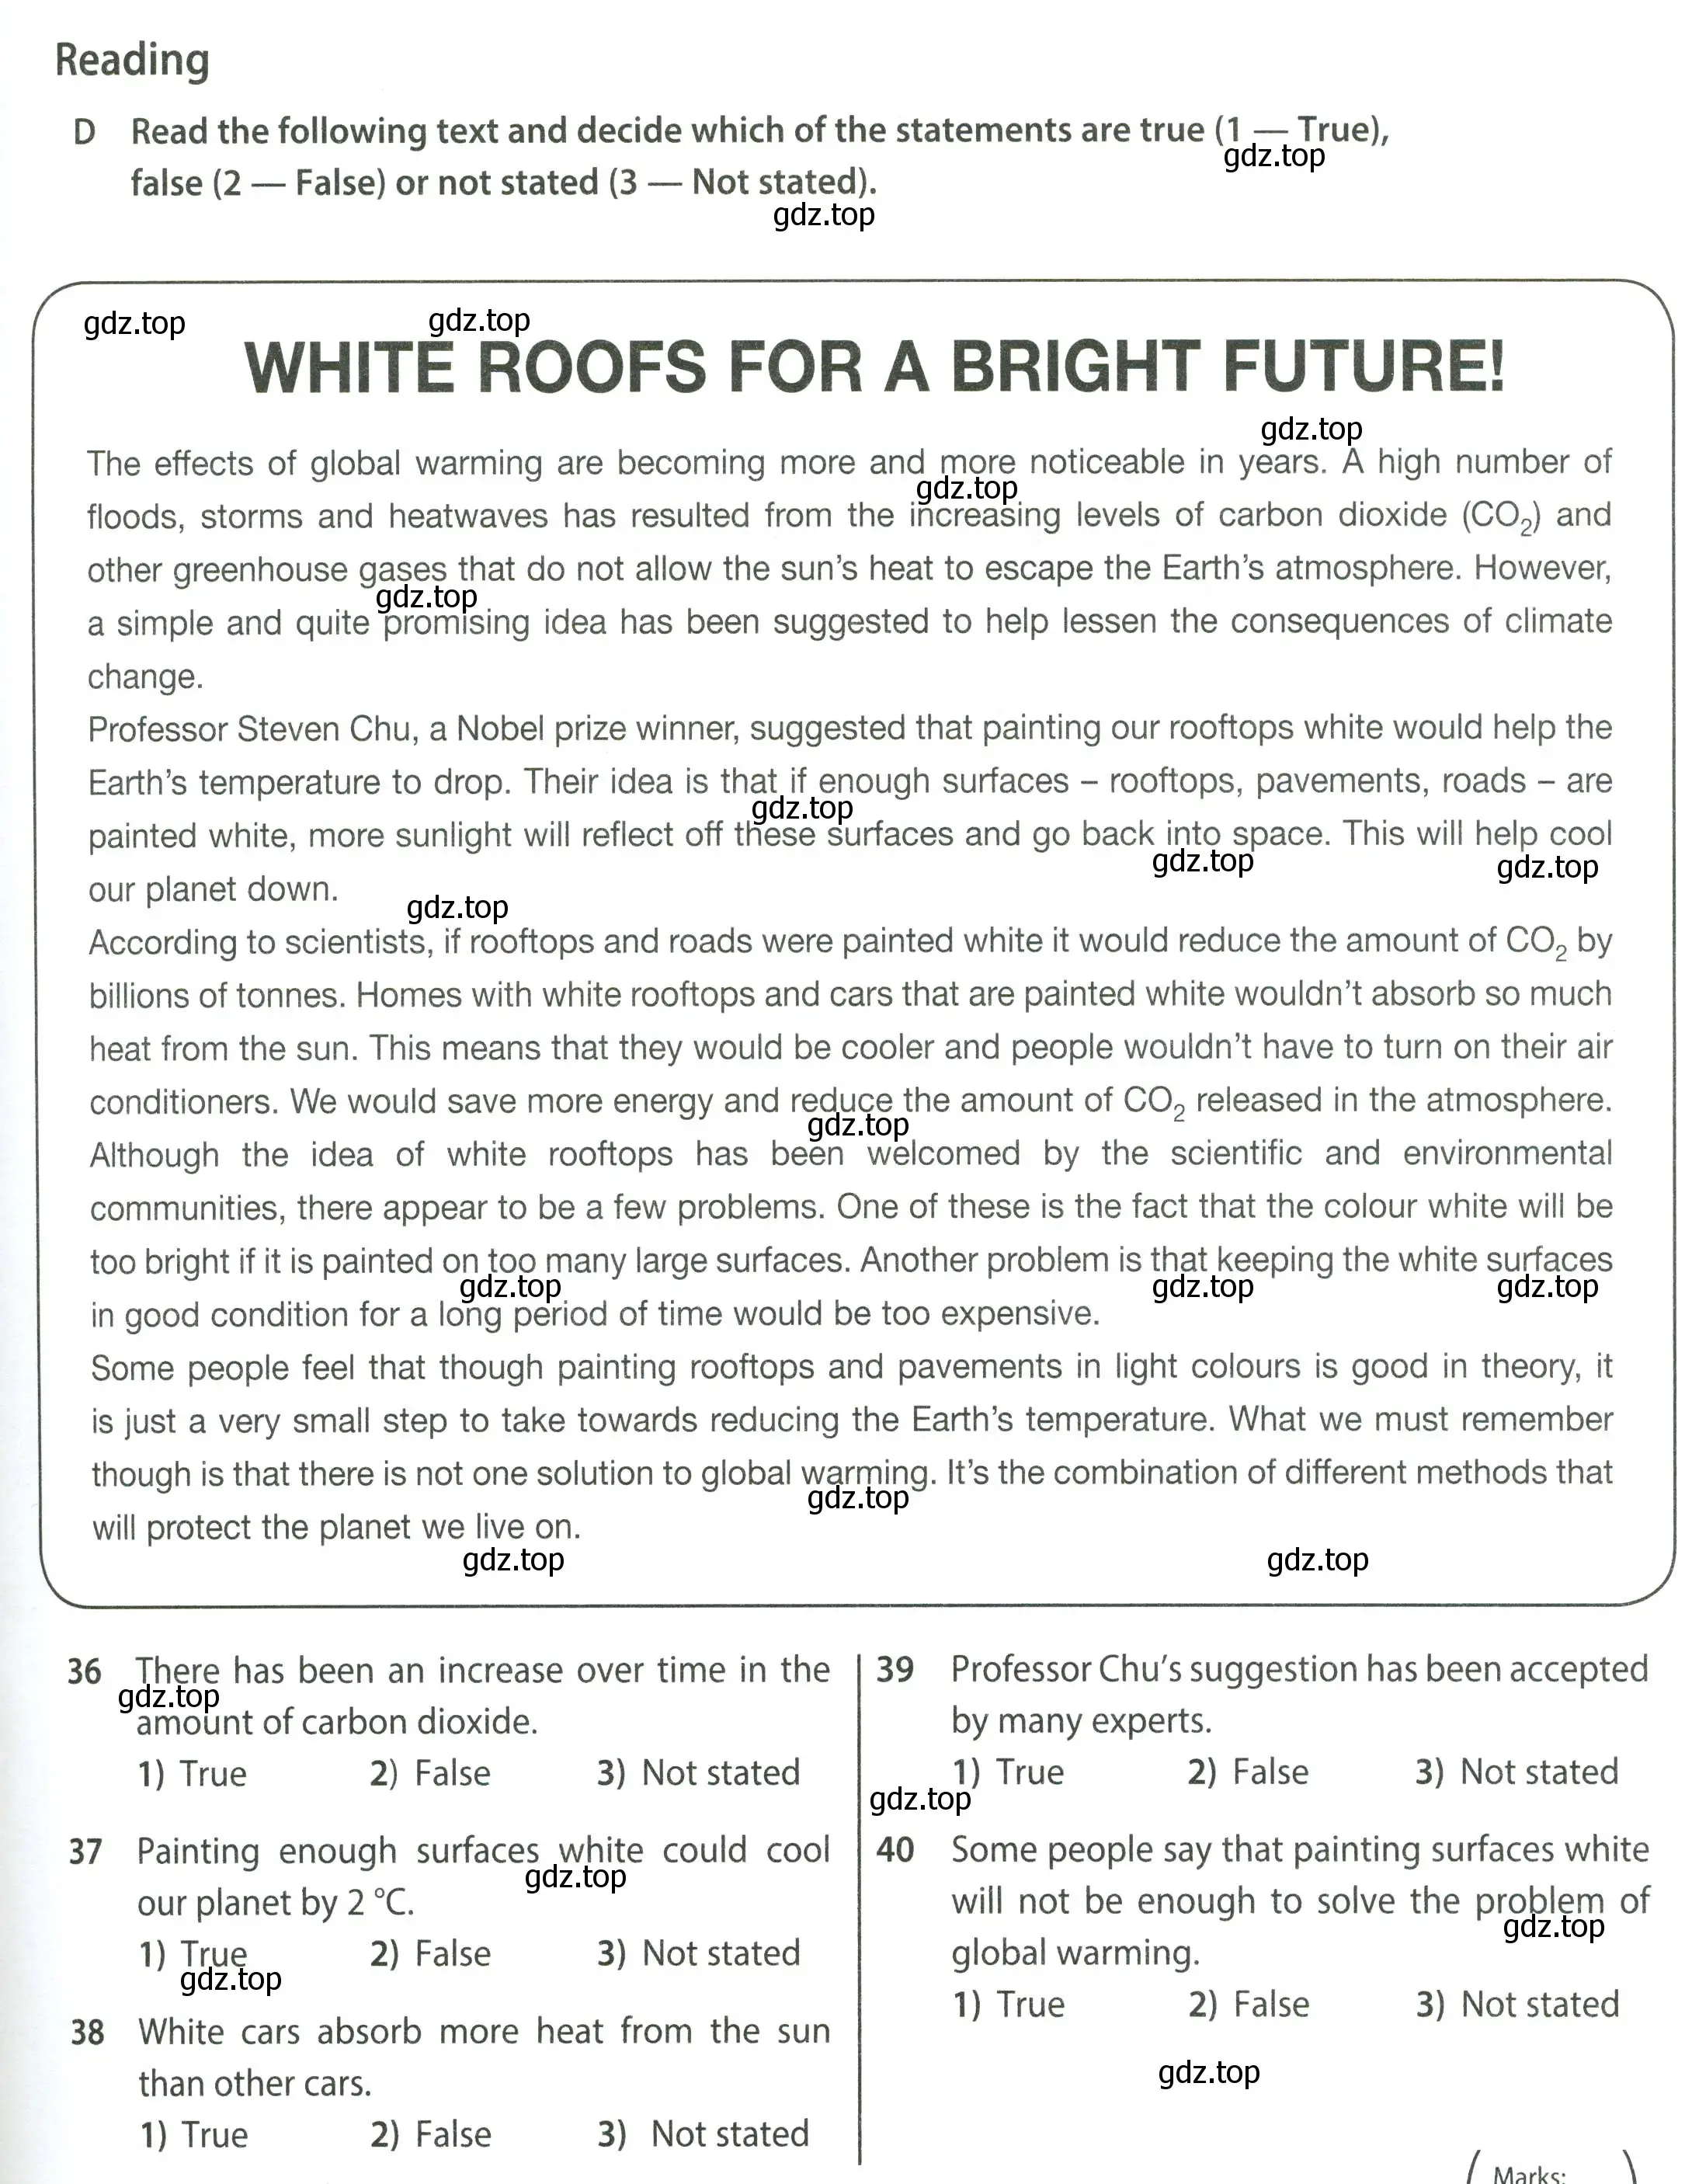 Reading
D Read the following text and decide which of the statements are true (1 — True),
gdz.top
false (2 — False) or not stated (3 — Not stated).
gdz.top
gdz.top
gdz.top
WHITE ROOFS FOR A BRIGHT FUTURE!
gdz.top
The effects of global warming are becoming more and more noticeable in years. A high number of
gdz.top
floods, storms and heatwaves has resulted from the increasing levels of carbon dioxide (CO₂) and
other greenhouse gases that do not allow the sun's heat to escape the Earth's atmosphere. However,
gdz.top
a simple and quite promising idea has been suggested to help lessen the consequences of climate
change.
Professor Steven Chu, a Nobel prize winner, suggested that painting our rooftops white would help the
Earth's temperature to drop. Their idea is that if enough surfaces – rooftops, pavements, roads – are
gdz.top
painted white, more sunlight will reflect off these surfaces and go back into space. This will help cool
gdz.top
gdz.top
our planet down.
gdz.top
According to scientists, if rooftops and roads were painted white it would reduce the amount of CO₂ by
billions of tonnes. Homes with white rooftops and cars that are painted white wouldn't absorb so much
heat from the sun. This means that they would be cooler and people wouldn't have to turn on their air
conditioners. We would save more energy and reduce the amount of CO₂ released in the atmosphere.
gdz.top
Although the idea of white rooftops has been welcomed by the scientific and environmental
communities, there appear to be a few problems. One of these is the fact that the colour white will be
too bright if it is painted on too many large surfaces. Another problem is that keeping the white surfaces
gdz.top
gdz.top
gdz.top
in good condition for a long period of time would be too expensive.
Some people feel that though painting rooftops and pavements in light colours is good in theory, it
is just a very small step to take towards reducing the Earth's temperature. What we must remember
though is that there is not one solution to global warming. It's the combination of different methods that
gdz.top
will protect the planet we live on.
gdz.top
gdz.top
36 There has been an increase over time in the
gdz.top
amount of carbon dioxide.
1) True 2) False 3) Not stated
37 Painting enough surfaces white could cool
gdz.top
our planet by 2 °C.
1) True 2) False 3) Not stated
gdz.top
38 White cars absorb more heat from the sun
than other cars.
1) True 2) False 3) Not stated
39 Professor Chu's suggestion has been accepted
by many experts.
1) True 2) False 3) Not stated
gdz.top
40 Some people say that painting surfaces white
will not be enough to solve the problem of
gdz.top
global warming.
1) True 2) False 3) Not stated
gdz.top
Marks: